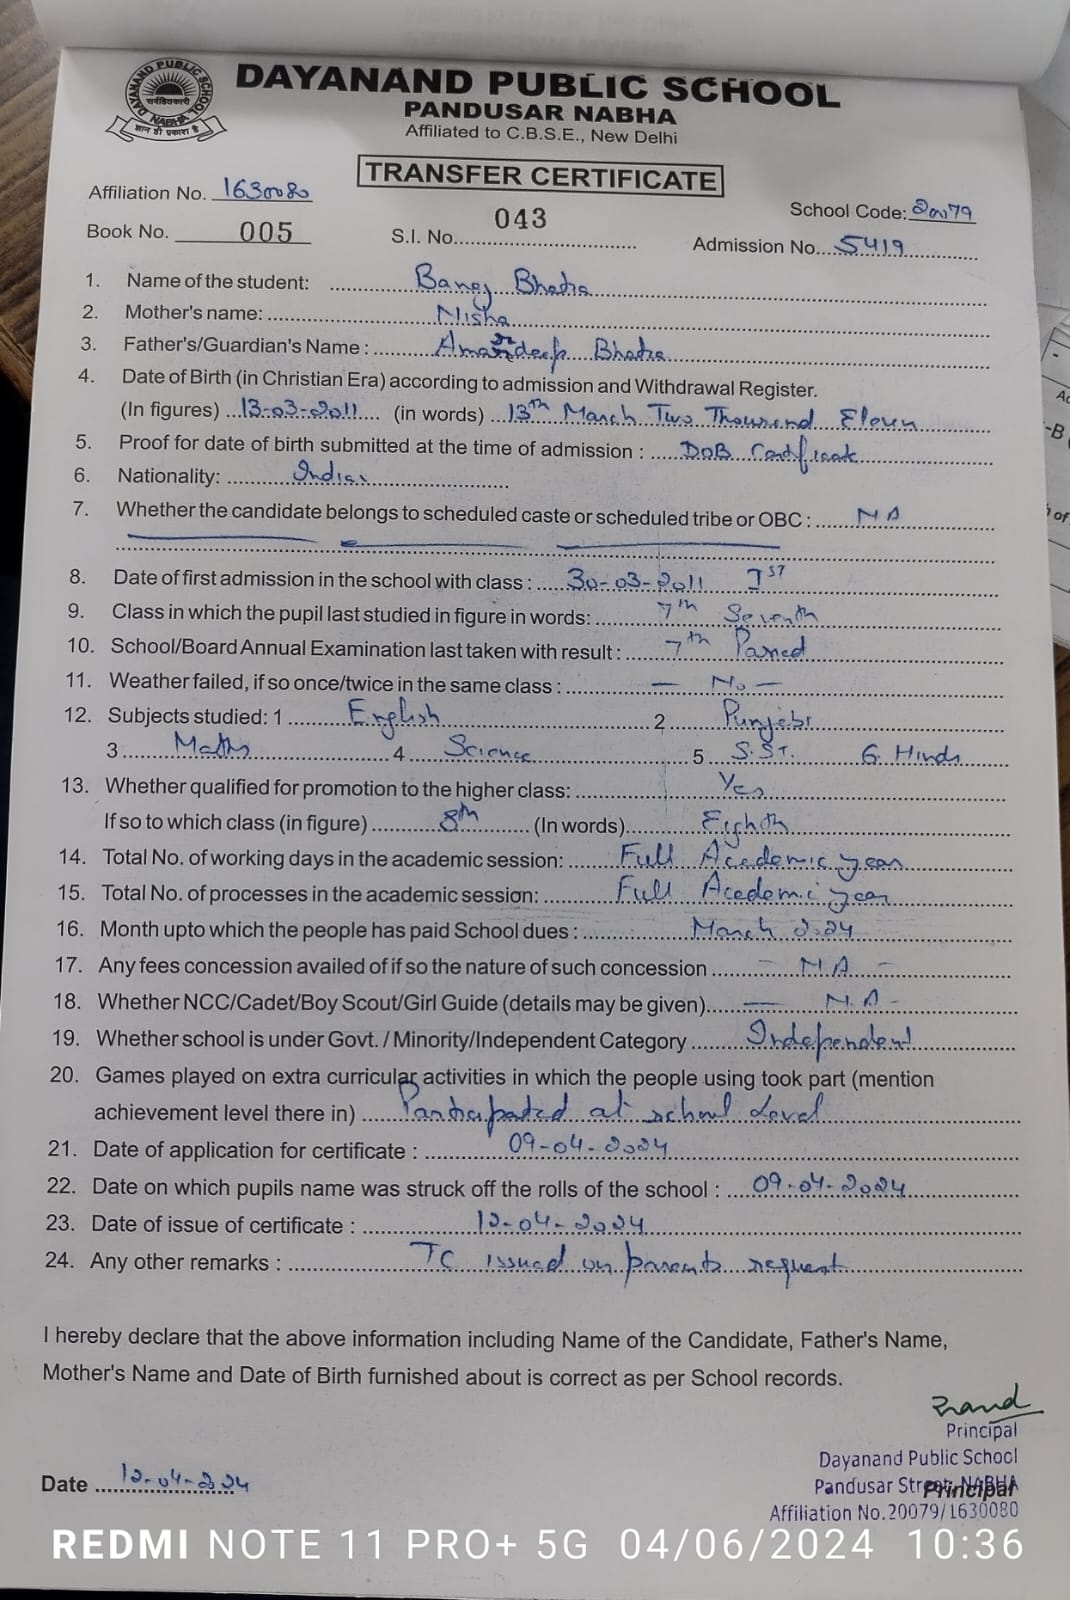 DAYANAND PUBLIC SCHOOL NABHA
सर्वहितकारी
ज्ञान ही प्रकाश है
DAYANAND PUBLIC SCHOOL
PANDUSAR NABHA
Affiliated to C.B.S.E., New Delhi
TRANSFER CERTIFICATE
Affiliation No. 1630080
School Code: 20079
Book No. 005 S.I. No. 043 Admission No. 5419
1. Name of the student: Bhatia
2. Mother's name: Nisha
3. Father's/Guardian's Name : Amandeep Bhatia
4. Date of Birth (in Christian Era) according to admission and Withdrawal Register.
(In figures) 13-03-2011 (in words) 13th March Two Thousand Eleven
5. Proof for date of birth submitted at the time of admission : DOB Certificate
6. Nationality: Indian
7. Whether the candidate belongs to scheduled caste or scheduled tribe or OBC : NA
8. Date of first admission in the school with class : 30-03-2011 Ist
9. Class in which the pupil last studied in figure in words: 7th Seventh
10. School/Board Annual Examination last taken with result : 7th Passed
11. Weather failed, if so once/twice in the same class : — No —
12. Subjects studied: 1 English 2 Punjabi
3 Maths 4 Science 5 S.ST. 6. Hindi
13. Whether qualified for promotion to the higher class: Yes
If so to which class (in figure) 8th (In words) Eighth
14. Total No. of working days in the academic session: Full Academic year
15. Total No. of processes in the academic session: Full Academic year
16. Month upto which the people has paid School dues : March 2024
17. Any fees concession availed of if so the nature of such concession – NA –
18. Whether NCC/Cadet/Boy Scout/Girl Guide (details may be given) — N.A –
19. Whether school is under Govt. / Minority/Independent Category Independent
20. Games played on extra curricular activities in which the people using took part (mention
achievement level there in) Participated at school Level
21. Date of application for certificate : 09-04-2024
22. Date on which pupils name was struck off the rolls of the school : 09-04-2024
23. Date of issue of certificate : 12-04-2024
24. Any other remarks : TC issued on parents request
I hereby declare that the above information including Name of the Candidate, Father's Name,
Mother's Name and Date of Birth furnished about is correct as per School records.
Principal
Dayanand Public School
Pandusar Street, NABHA
Principal
Affiliation No.20079/1630080
Date 12-04-2024
REDMI NOTE 11 PRO+ 5G 04/06/2024 10:36